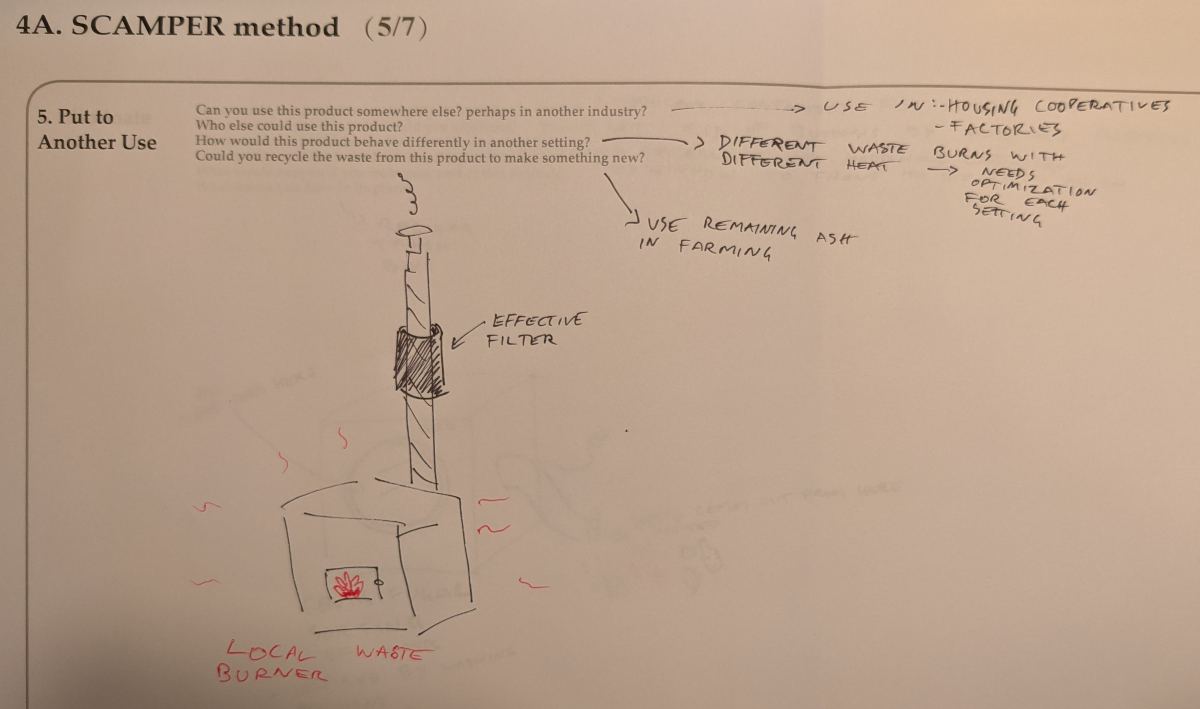 4A. SCAMPER method (5/7)
5. Put to
Another Use
Can you use this product somewhere else? perhaps in another industry?
Who else could use this product?
How would this product behave differently in another setting?
Could you recycle the waste from this product to make something new?
USE IN:-HOUSING COOPERATIVES
-FACTORIES
DIFFERENT WASTE BURNS WITH
DIFFERENT HEAT → NEEDS
OPTIMIZATION
FOR EACH
SETTING
USE REMAINING ASH
IN FARMING
EFFECTIVE
FILTER
LOCAL WASTE
BURNER